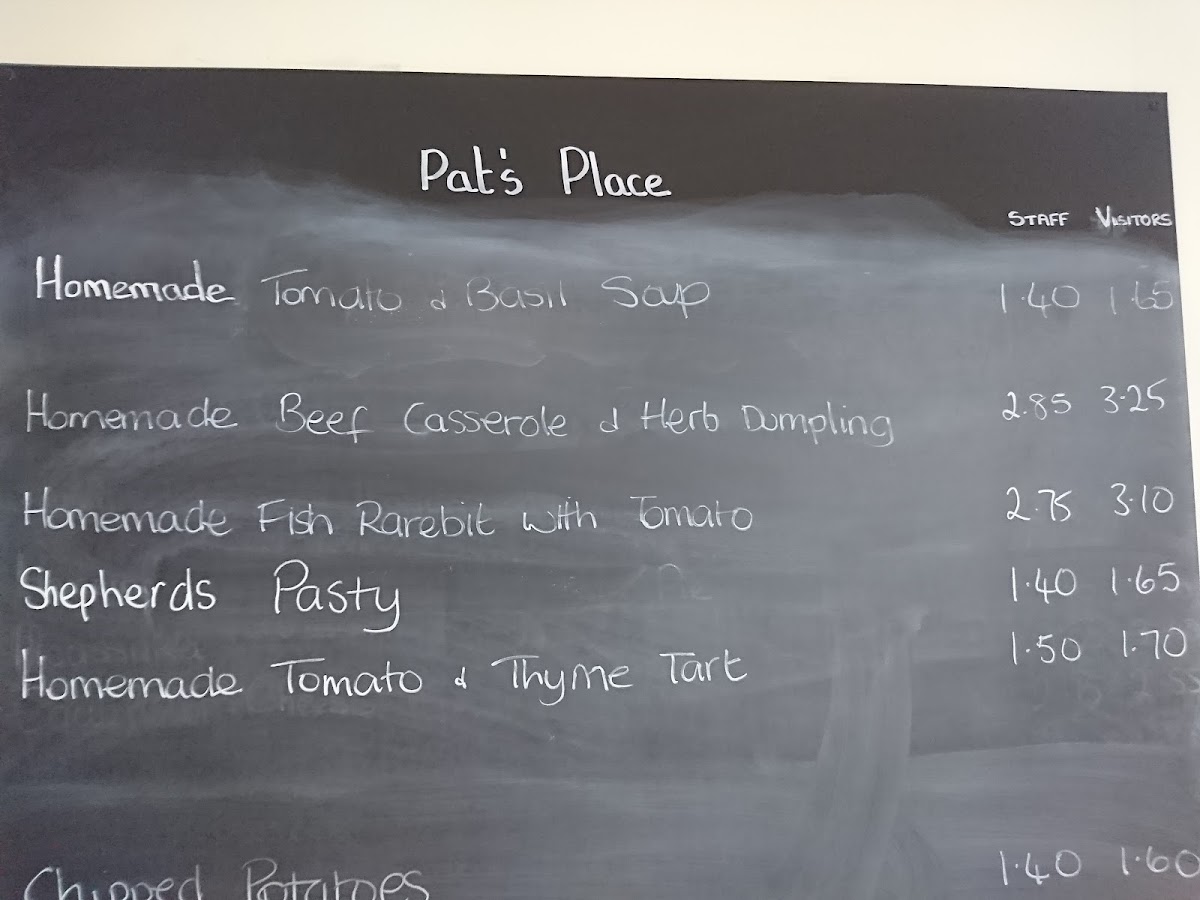 Pat's Place
STAFF VISITORS
Homemade Tomato & Basil Soup 1.40 1.65
Homemade Beef Casserole & Herb Dumpling 2.85 3.25
Homemade Fish Rarebit with Tomato 2.75 3.10
Shepherds Pasty 1.40 1.65
Homemade Tomato & Thyme Tart 1.50 1.70
Chipped Potatoes 1.40 1.60